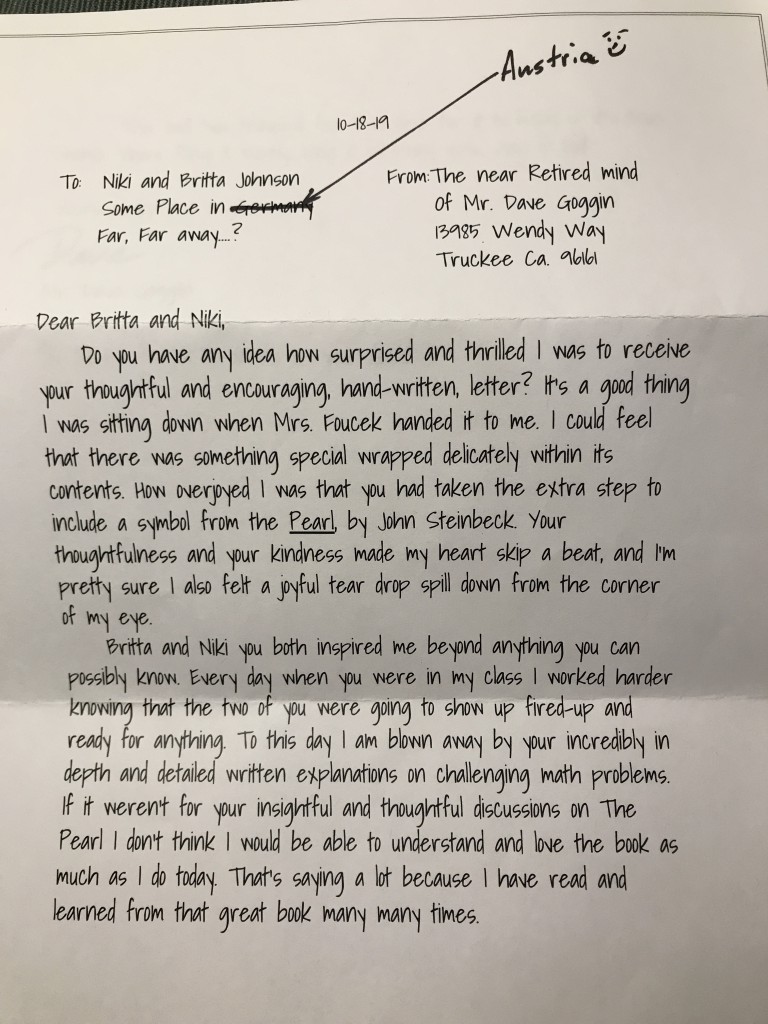 Austria
10-18-19
To: Niki and Britta Johnson
Some Place in Germany
Far, Far away....?
From: The near Retired mind
of Mr. Dave Goggin
13985 Wendy Way
Truckee Ca. 96161
Dear Britta and Niki,
Do you have any idea how surprised and thrilled I was to receive
your thoughtful and encouraging, hand-written, letter? It's a good thing
I was sitting down when Mrs. Foucek handed it to me. I could feel
that there was something special wrapped delicately within its
contents. How overjoyed I was that you had taken the extra step to
include a symbol from the Pearl, by John Steinbeck. Your
thoughtfulness and your kindness made my heart skip a beat, and I'm
pretty sure I also felt a joyful tear drop spill down from the corner
of my eye.
Britta and Niki you both inspired me beyond anything you can
possibly know. Every day when you were in my class I worked harder
knowing that the two of you were going to show up fired-up and
ready for anything. To this day I am blown away by your incredibly in
depth and detailed written explanations on challenging math problems.
If it weren't for your insightful and thoughtful discussions on The
Pearl I don't think I would be able to understand and love the book as
much as I do today. That's saying a lot because I have read and
learned from that great book many many times.